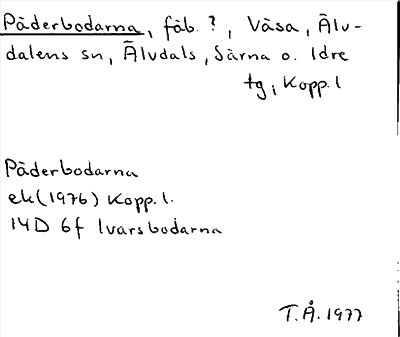 Päderbodarna, fäb. ?, Väsa, Älv-
dalens sn, Älvdals, Särna o. Idre
tg, Kopp. l
Päderbodarna
ek (1976) Kopp. l.
14D 6f Ivarsbodarna
T.Å. 1977